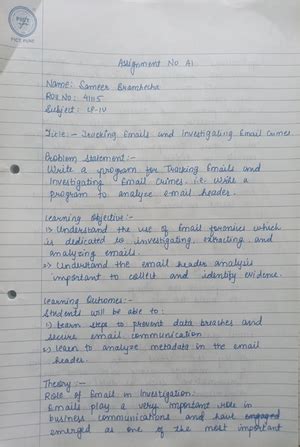 PICT, PUNE
Assignment No A1
Name: Sameer Bramhecha
Roll No: 41115
Subject: LP-IV
Title:- Tracking Emails and Investigating Email Crimes
Problem Statement:-
Write a program for Tracking Emails and
Investigating Email Crimes. i.e. Write a
program to analyze e-mail header.
Learning Objective:-
1> Understand the use of Email forensics which
is dedicated to investigating, extracting and
analyzing emails.
2> Understand the email header analysis
important to collect and identify evidence.
Learning Outcomes:-
Students will be able to:
1) Learn steps to prevent data breaches and
secure email communication.
2) Learn to analyse metadata on the email
header.
Theory:-
Role of Email in Investigation:
Emails play a very important role in
business communications and have
emerged as one of the most important